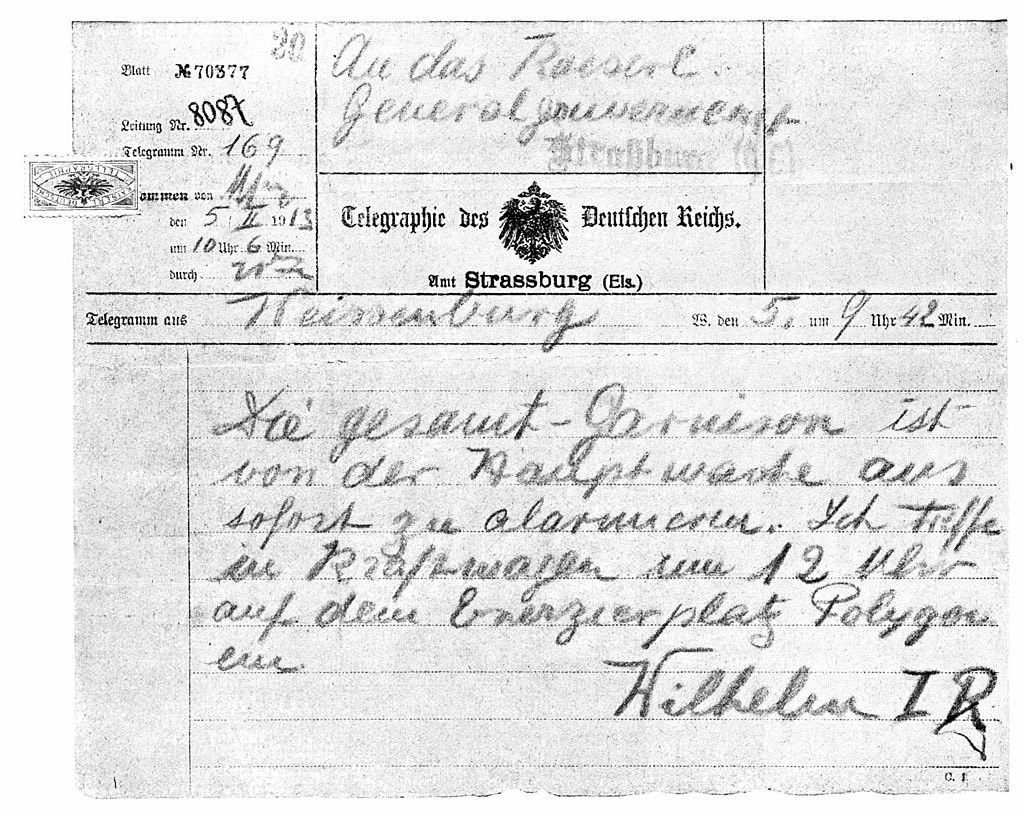 20
Blatt № 70377
Leitung Nr. 8087
Telegramm Nr. 169
ommen von
den 5 II 1913
um 10 Uhr 6 Min.
durch
An das Kaiserl.
Generalgouvernement
Straßburg (Els)
Telegraphie des Deutschen Reichs.
Amt Strassburg (Els.)
Telegramm aus Weissenburg W. den 5. um 9 Uhr 42 Min.
Die gesamt-Garnison ist
von der Hauptwache aus
sofort zu alarmieren. Ich treffe
im Kraftwagen um 12 Uhr
auf dem Exerzierplatz Polygon
ein
Wilhelm I R
C. 1.